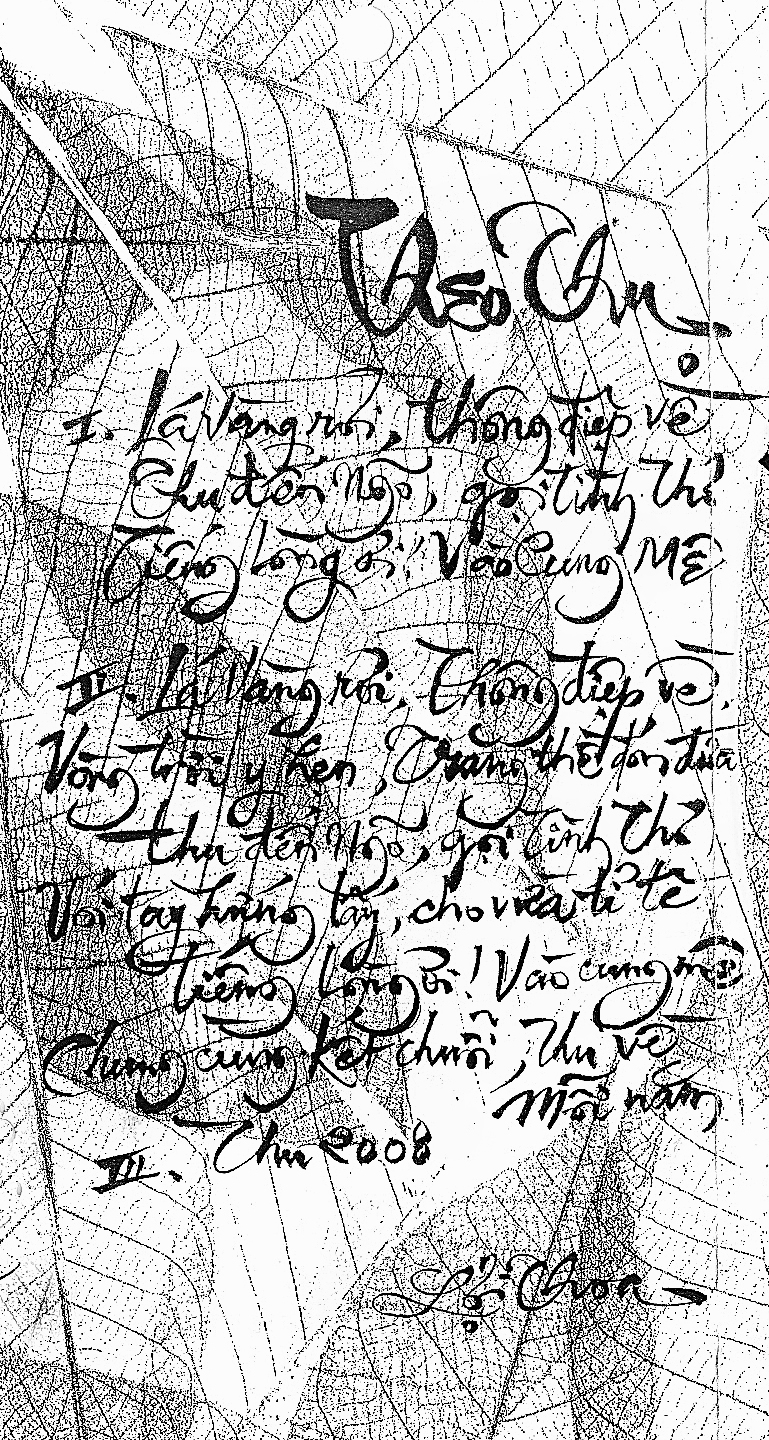 Theo Thu
I. Lá Vàng rơi, thông điệp về
Thu đến Ngõ, gọi tình thơ
Tiếng lòng ơi! Vào Cung Mê
II. Lá Vàng rơi, Thông điệp về.
Vòng trời y hẹn, Trăng thề đón đưa
thu đến Ngõ, gọi tình Thơ
Với tay hứng lấy, cho vừa tỉ tê
tiếng lòng ơi! Vào cung mê
Chung cùng kết chuỗi, Thu về
Mỗi năm
III. Thu 2008
Thoa